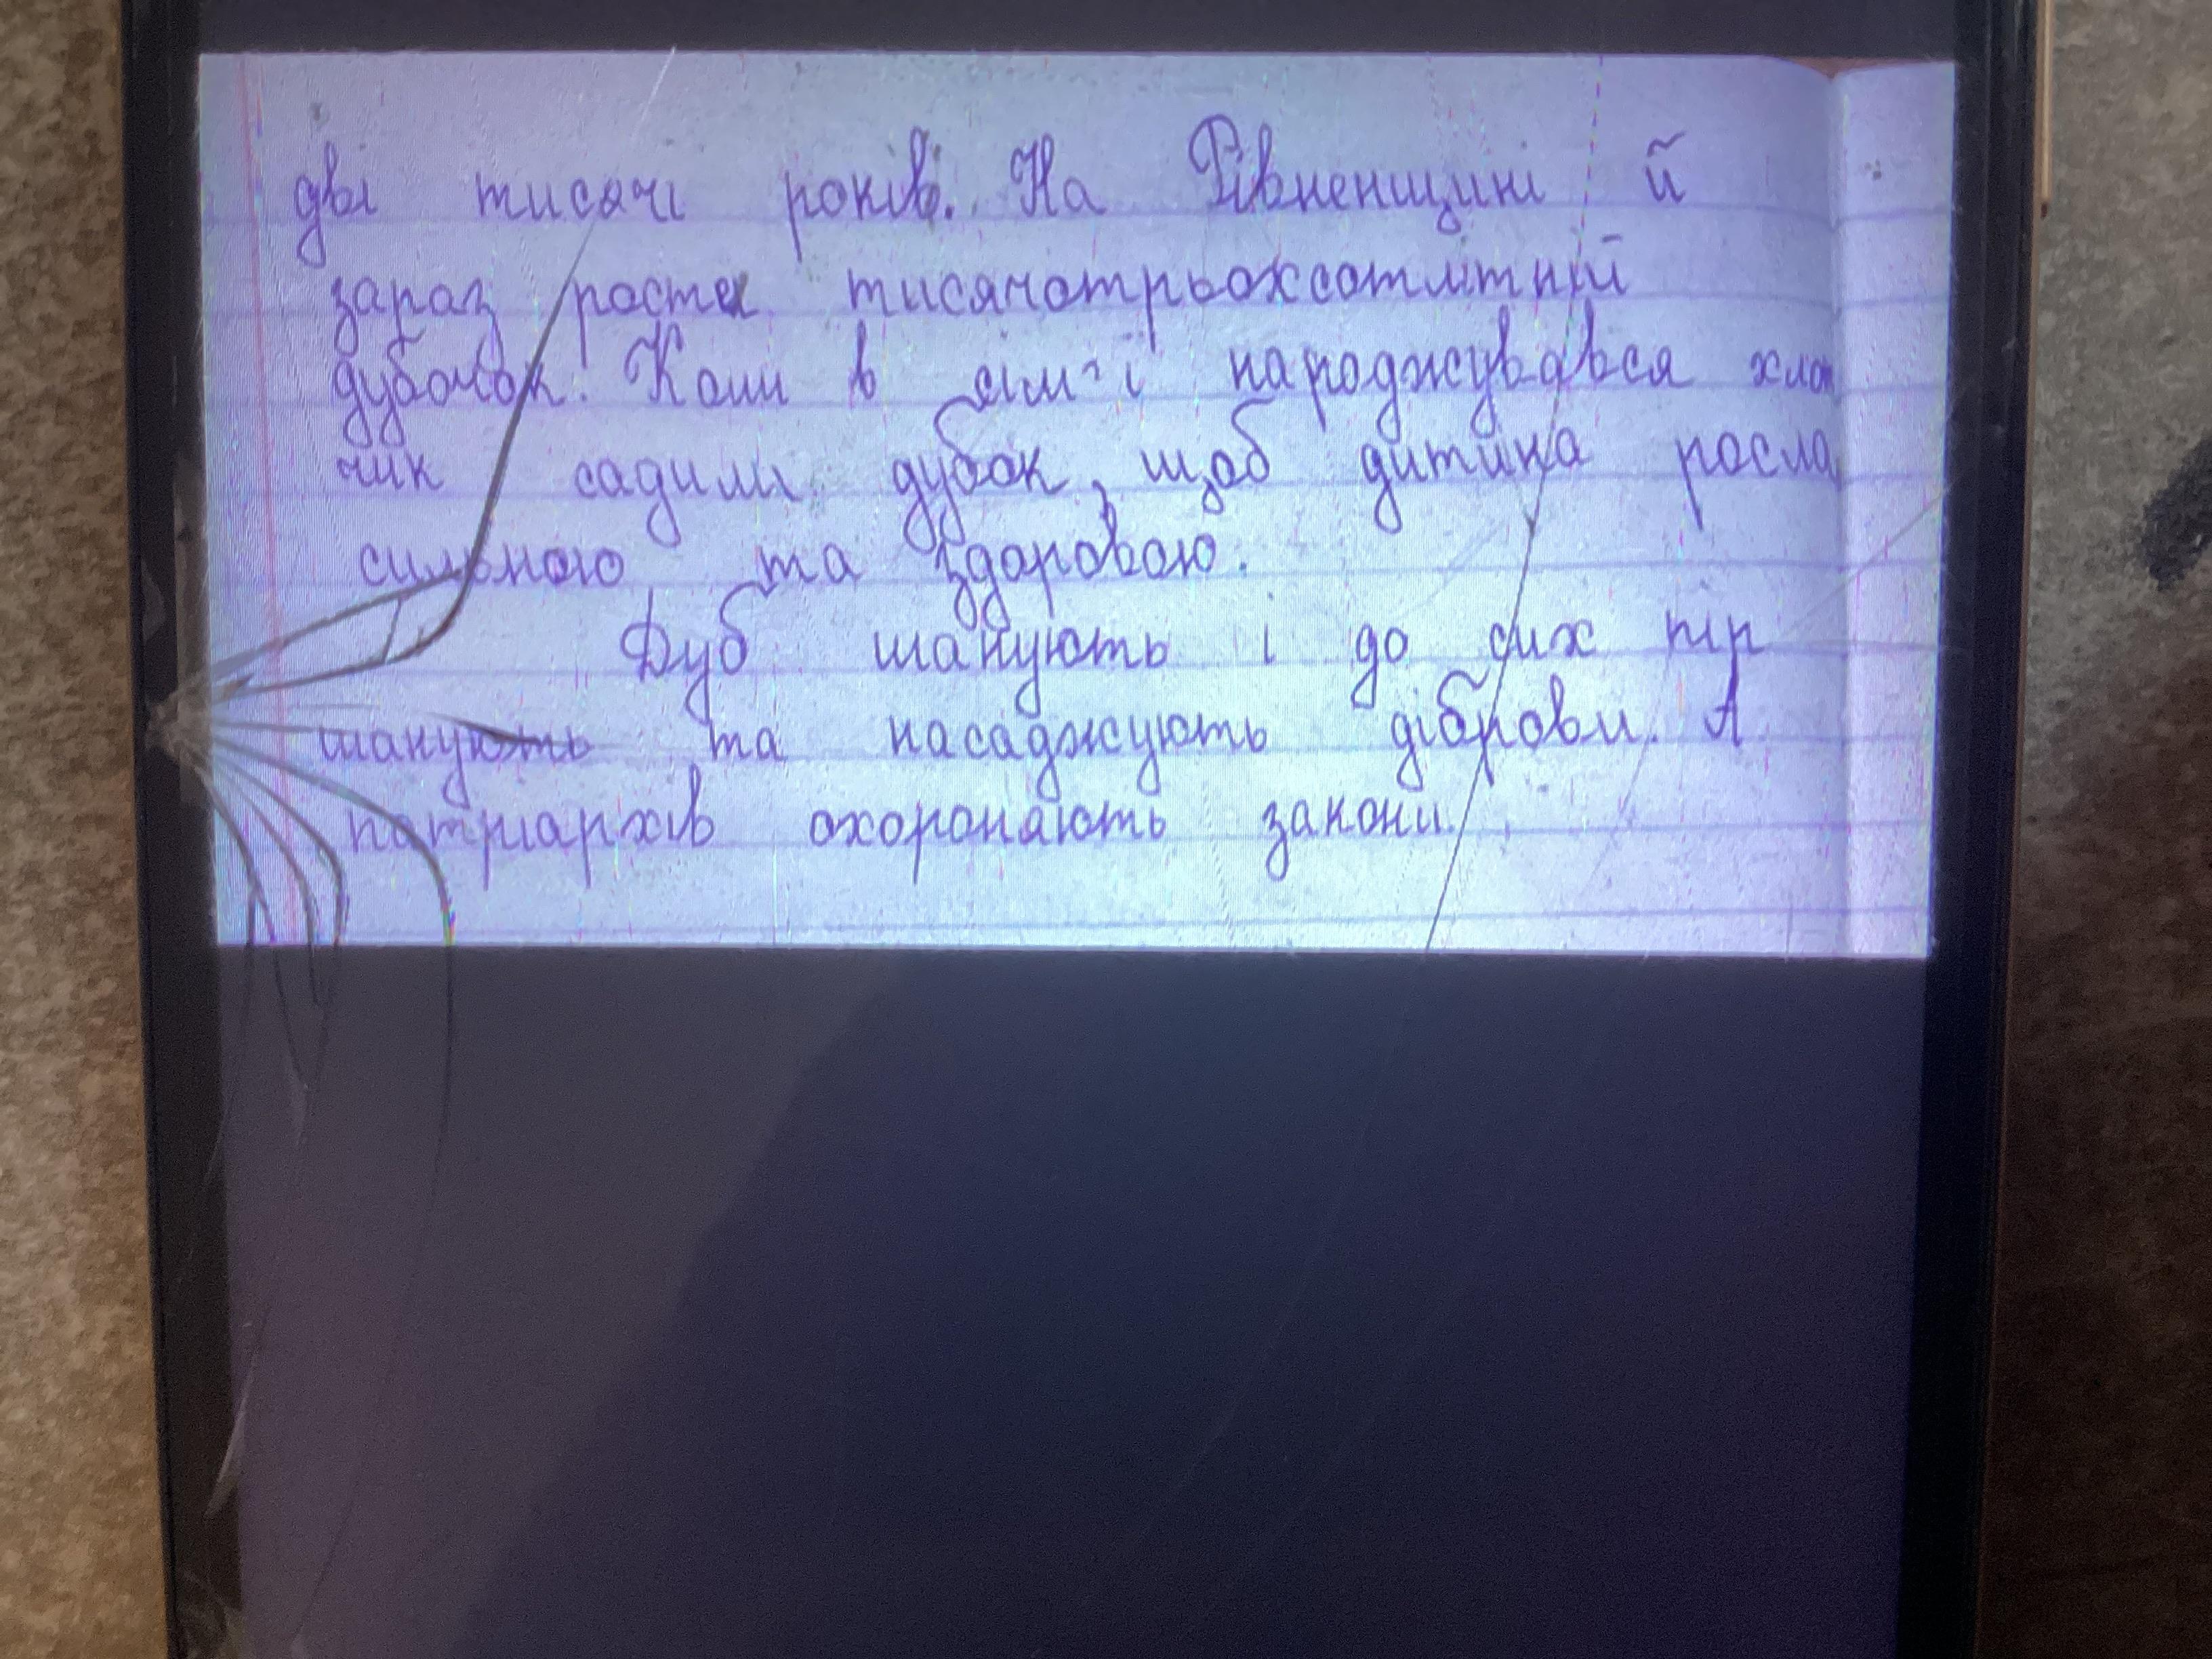 дві тисячі років. На Рівненщині й
зараз росте тисячотрьохсотлітній
дубочок. Коли в сім'ї народжувався хлоп
чик садили дубок, щоб дитина росла
сильною та здоровою.
Дуб шанують і до сих пір
шанують та насаджують діброви. А
патріархів охороняють закони.